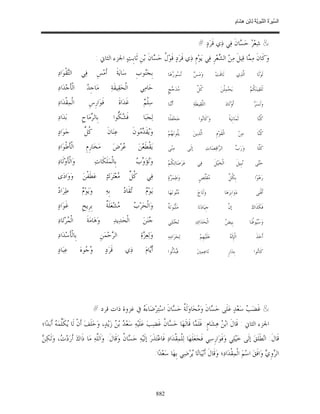 السِّيرَةُ النَّبَوِيَّةُ لِابْنِ هِشَامٍ
شِعْرُ حَسَّانَ فِي ذِي قَرَدٍ //
وَكَانَ مِمَّا قِيلَ مِنْ الشِّعْرِ فِي يَوْمِ ذِي قَرَدٍ قَوْلُ حَسَّانَ بْنِ ثَابِتٍ الجزء الثاني :
لَوْلَا الَّذِي لَاقَتْ وَمَسَّ نُسُورَهَا بِجَنُوبِ سَايَةَ أَمْسِ فِي التَّقْوَادِ
لَلَقِينَكُمْ يَحْمِلْنَ كُلَّ مُدَجَّجٍ حَامِي الْحَقِيقَةِ مَاجِدُ الْأَجْدَادِ
وَلَسَرَّ أَوْلَادَ اللَّقِيطَةِ أَنَّنَا سِلْمٌ غَدَاةَ فَوَارِسِ الْمِقْدَادِ
كُنَّا ثَمَانِيَةً وَكَانُوا جَحْفَلًا لَجِبًا فَشُكُّوا بِالرِّمَاحِ بَدَادِ
كُنَّا مِنْ الْقَوْمِ الَّذِينَ يَلُونَهُمْ وَيُقَدِّمُونَ عِنَانَ كُلِّ جَوَادِ
كَلَّا وَرَبِّ الرَّاقِصَاتِ إلَى مِنًى يَقْطَعْنَ عُرْضَ مَخَارِمِ الْأَطْوَادِ
حَتَّى نُبِيلَ الْخَيْلَ فِي عَرَصَاتِكُمْ وَنُؤَوِّبُ بِالْمَلَكَاتِ وَالْأَوْلَادِ
رَهْوًا بِكُلِّ مُقَلِّصٍ وَطِمِرَّةٍ فِي كُلِّ مُعْتَرَكٍ عَطَفْنَ وَوَادِى
أَفْنَى دَوَابِرَهَا وَلَاحَ مُتُونَهَا يَوْمٌ تُقَادُ بِهِ وَيَوْمُ طِرَادِ
فَكَذَاكَ إنَّ جِيَادَنَا مَلْبُونَةٌ وَالْحَرْبُ مُشْعَلَةٌ بِرِيحِ غَوَادِ
وَسُيُوفُنَا بِيضُ الْحَدَائِدِ تَجْتَلِي جُنَنَ الْحَدِيدِ وَهَامَةَ الْمُرْتَادِ
أَخَذَ الْإِلَهُ عَلَيْهِمْ لِحَرَامِهِ وَلِعِزَّةِ الرَّحْمَنِ بِالْأَسْدَادِ
كَانُوا بِدَارٍ نَاعِمِينَ فَبُدِّلُوا أَيَّامَ ذِي قَرَدٍ وُجُوهَ عِبَادِ
غَضَبُ سَعْدٍ عَلَى حَسَّانَ وَمُحَاوَلَةُ حَسَّانَ اسْتِرْضَاءَهُ في غزوة ذات قرد //
الجزء الثاني قَالَ ابْنُ هِشَامٍ: فَلَمَّا قَالَهَا حَسَّانُ غَضِبَ عَلَيْهِ سَعْدُ بْنُ زَيْدٍ، وَحَلَفَ أَنْ لَا يُكَلِّمَهُ أَبَدًا؛
قَالَ: انْطَلَقَ إلَى خَيْلِي وَفَوَارِسِي فَجَعَلَهَا لِلْمِقْدَادِ فَاعْتَذَرَ إلَيْهِ حَسَّانُ وَقَالَ: وَاَللَّهِ مَا ذَاكَ أَرَدْتُ، وَلَكِنَّ
الرَّوِيَّ وَافَقَ اسْمَ الْمِقْدَادِ؛ وَقَالَ أَبْيَاتًا يُرْضِي بِهَا سَعْدًا:
882